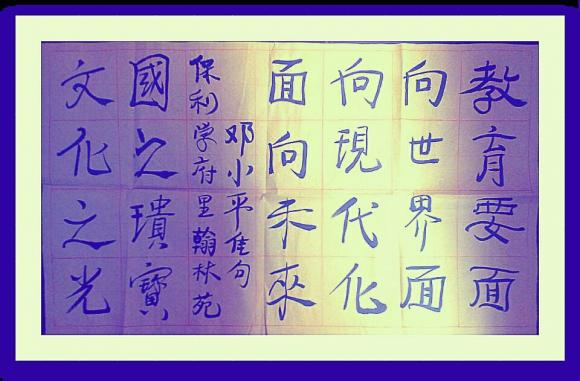 教育要面
向世界面
向現代化
面向未來
邓小平佳句
保利学府里翰林苑
國之瓌寶
文化之光